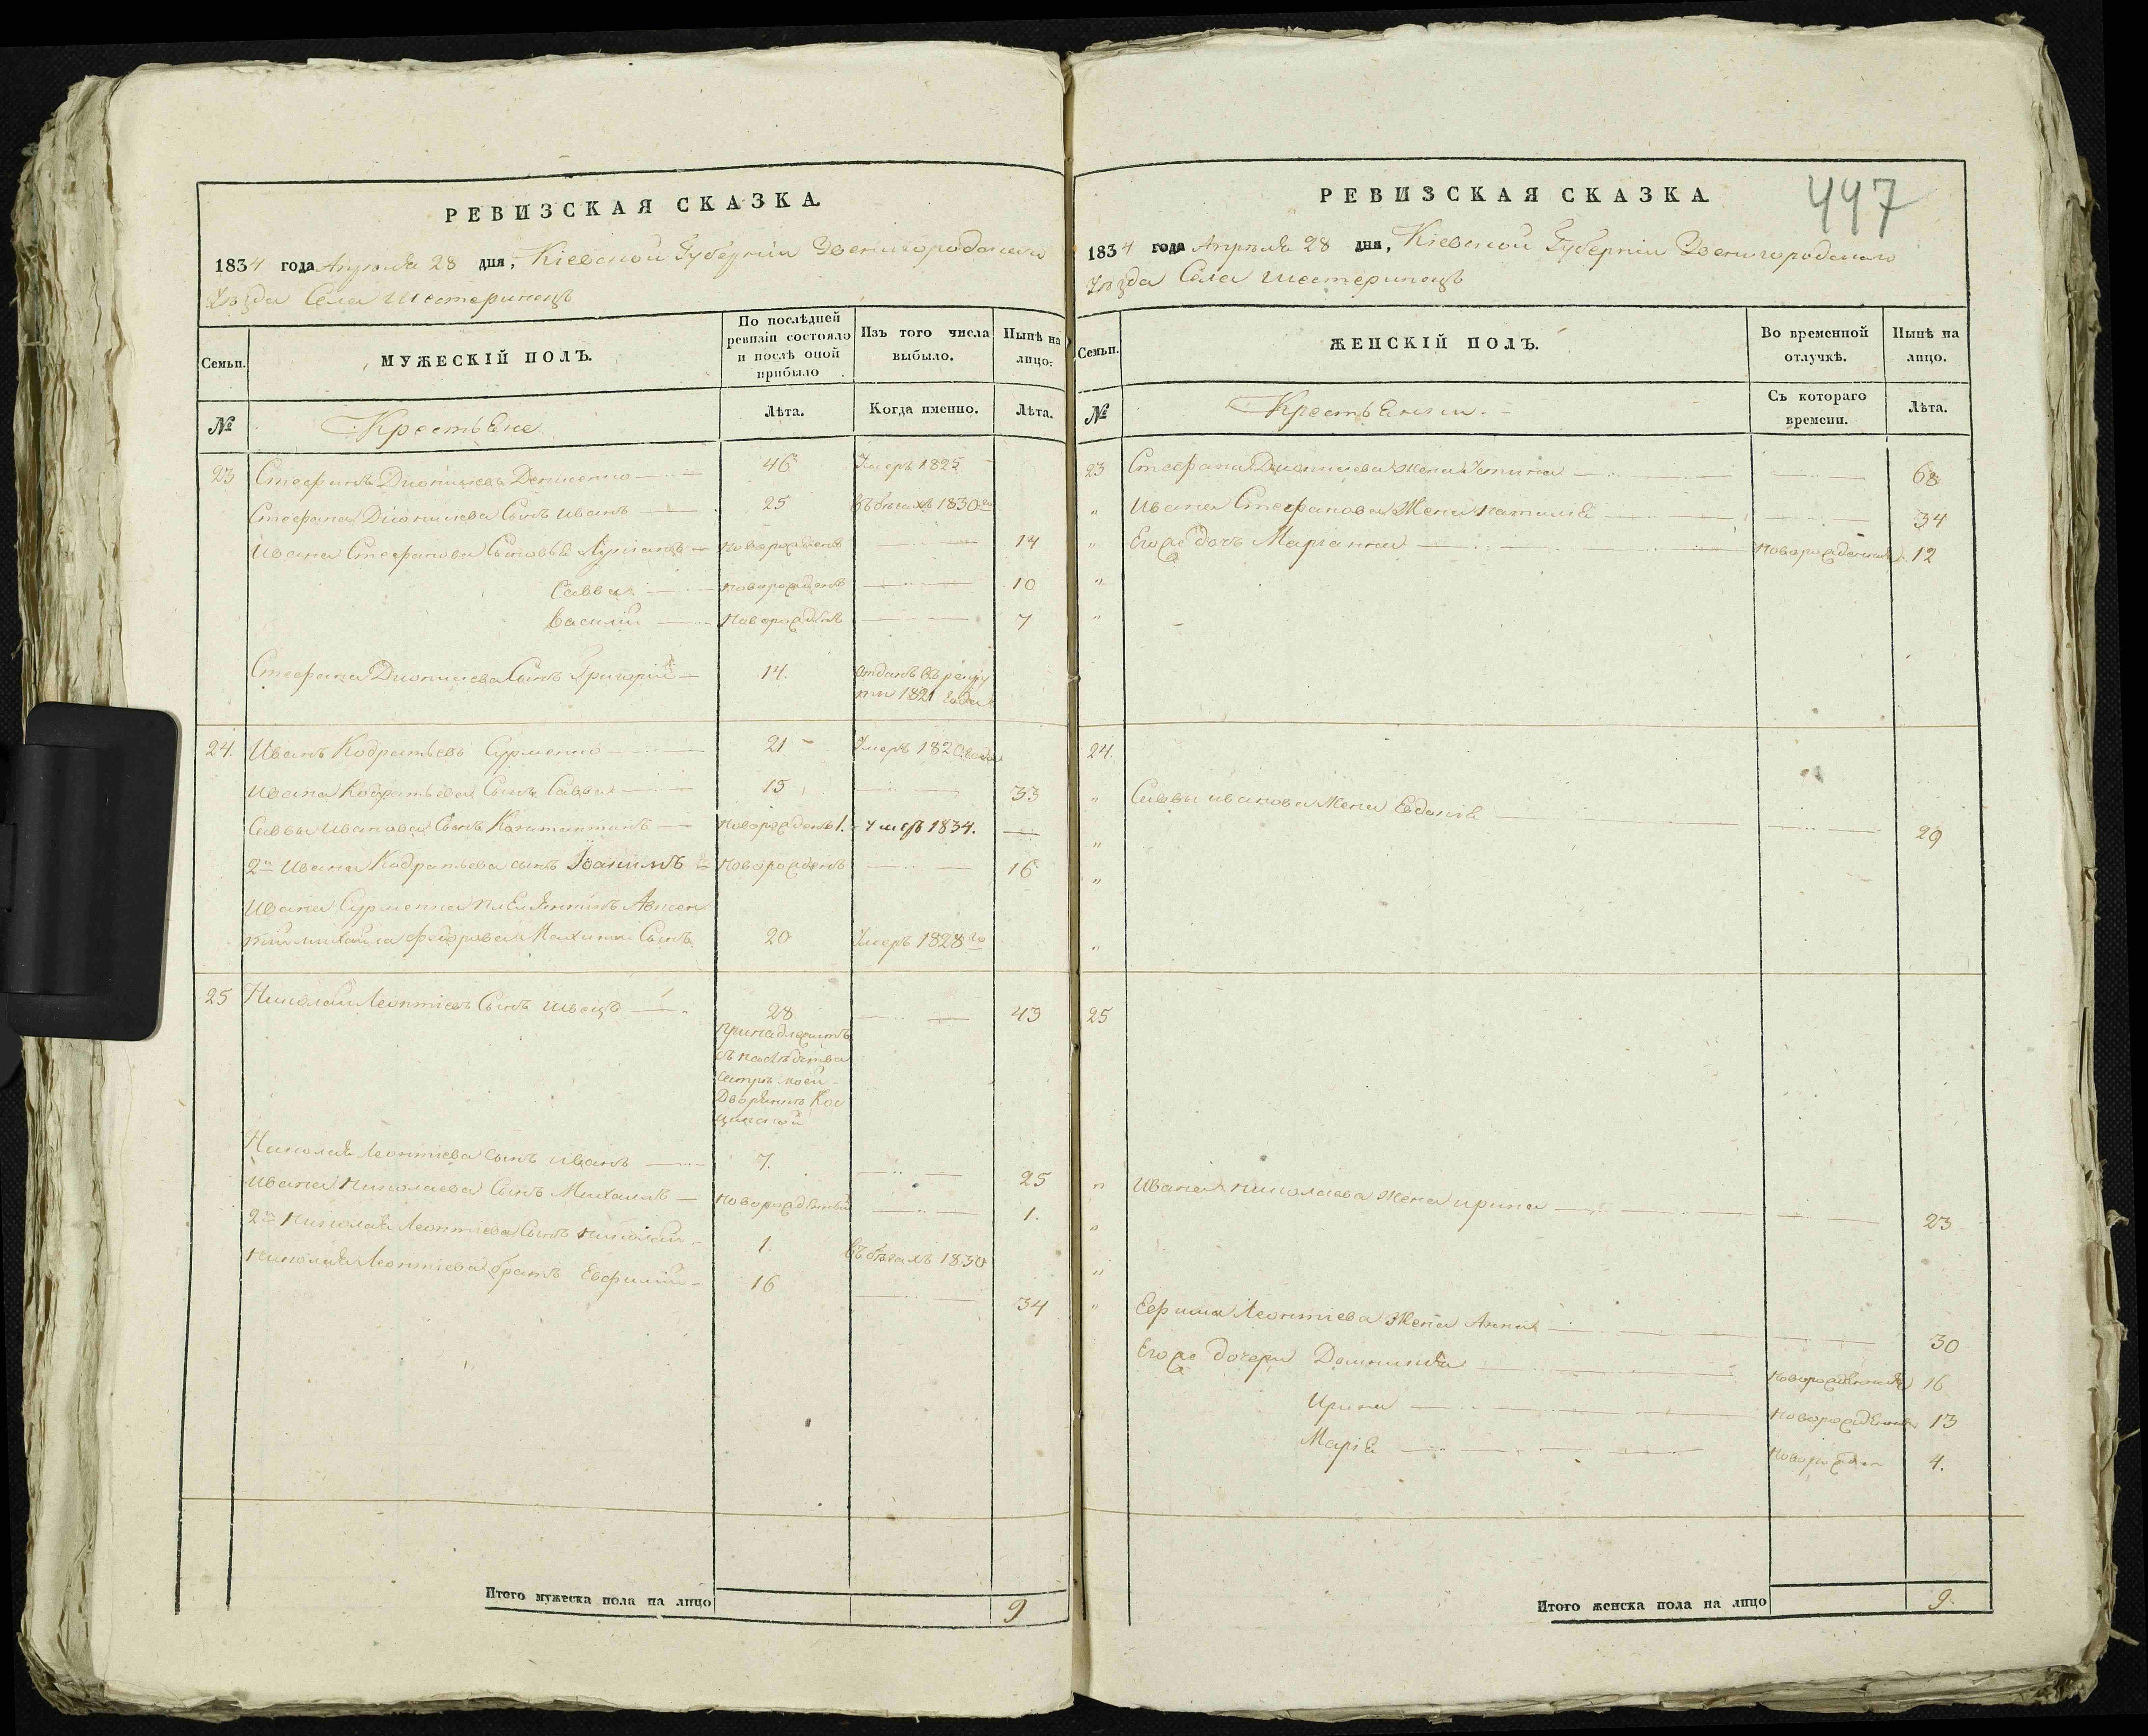 РЕВИЗСКАЯ СКАЗКА
1834 года Апреля 28 дня, Кіевской Губерніи Звенигородскаго
Уѣзда Села Шестеринецъ
Семьи.
МУЖЕСКІЙ ПОЛЪ.
По послѣдней
ревизіи состояло
и послѣ оной
прибыло
Изъ того числа
выбыло.
Нынѣ на
лицо.
№
Крестьяне
Лѣта.
Когда именно.
Лѣта.
23 Стефанъ Дионисіевъ Денисенко 46 Умеръ 1825
Стефана Діонисіева Сынъ Иванъ 25 Въ бегахъ 1830го
Ивана Стефанова Сыновья новорожденъ 14
Савва новорожденъ 10
Василій новорожденъ 7
Стефана Дионисіева Сынъ Григорій 14. отданъ въ рекру
ты 1821 года
24. Иванъ Кодратьевъ Сурменко 21 Умеръ 1820 года
Ивана Кодратьева Сынъ Савва 15 33
Саввы Иванова Сынъ новорожденъ 1. умеръ 1834.
2й Ивана Кодратьева сынъ Іоакимъ новорожденъ 16
Ивана Сурменка племянникъ Авксен
тій Михайла Федорова Сынъ 20 Умеръ 1828го
25 Николай Леонтіевъ Сынъ Швецъ 28 43
принадлежитъ
въ наслѣдства
сестрѣ моей
Дворянкѣ Кос
цинской
Николая Леонтіева сынъ Иванъ 7. 25
Ивана Николаева Сынъ Михаилъ новорожденный 1.
2й Николая Леонтіева Сынъ Николай 1. Въ бегахъ 1830
Николая Леонтіева братъ Евфимій 16 34
Итого мужеска пола на лицо 9
447
РЕВИЗСКАЯ СКАЗКА
1834 года Апреля 28 дня, Кіевской Губерніи Звенигородскаго
Уѣзда Села Шестеринецъ
Семьи.
ЖЕНСКІЙ ПОЛЪ.
Во временной
отлучкѣ.
Нынѣ на
лицо.
№
Крестьянки.
Съ котораго
времени.
Лѣта.
23 Стефана Дионисіева Жена Устина 68
" Ивана Стефанова Жена Наталія 34
" Его же дочь Маріанна новорожденная 12
"
"
24.
" Саввы Иванова Жена Евдокія 29
"
"
"
25
" Ивана Николаева Жена Ирина 23
"
"
" Ефима Леонтіева Жена Анна 30
Его же дочери Домникія новорожденная 16
Ирина новорожденная 13
Марія новорожден 4.
Итого женска пола на лицо 9.